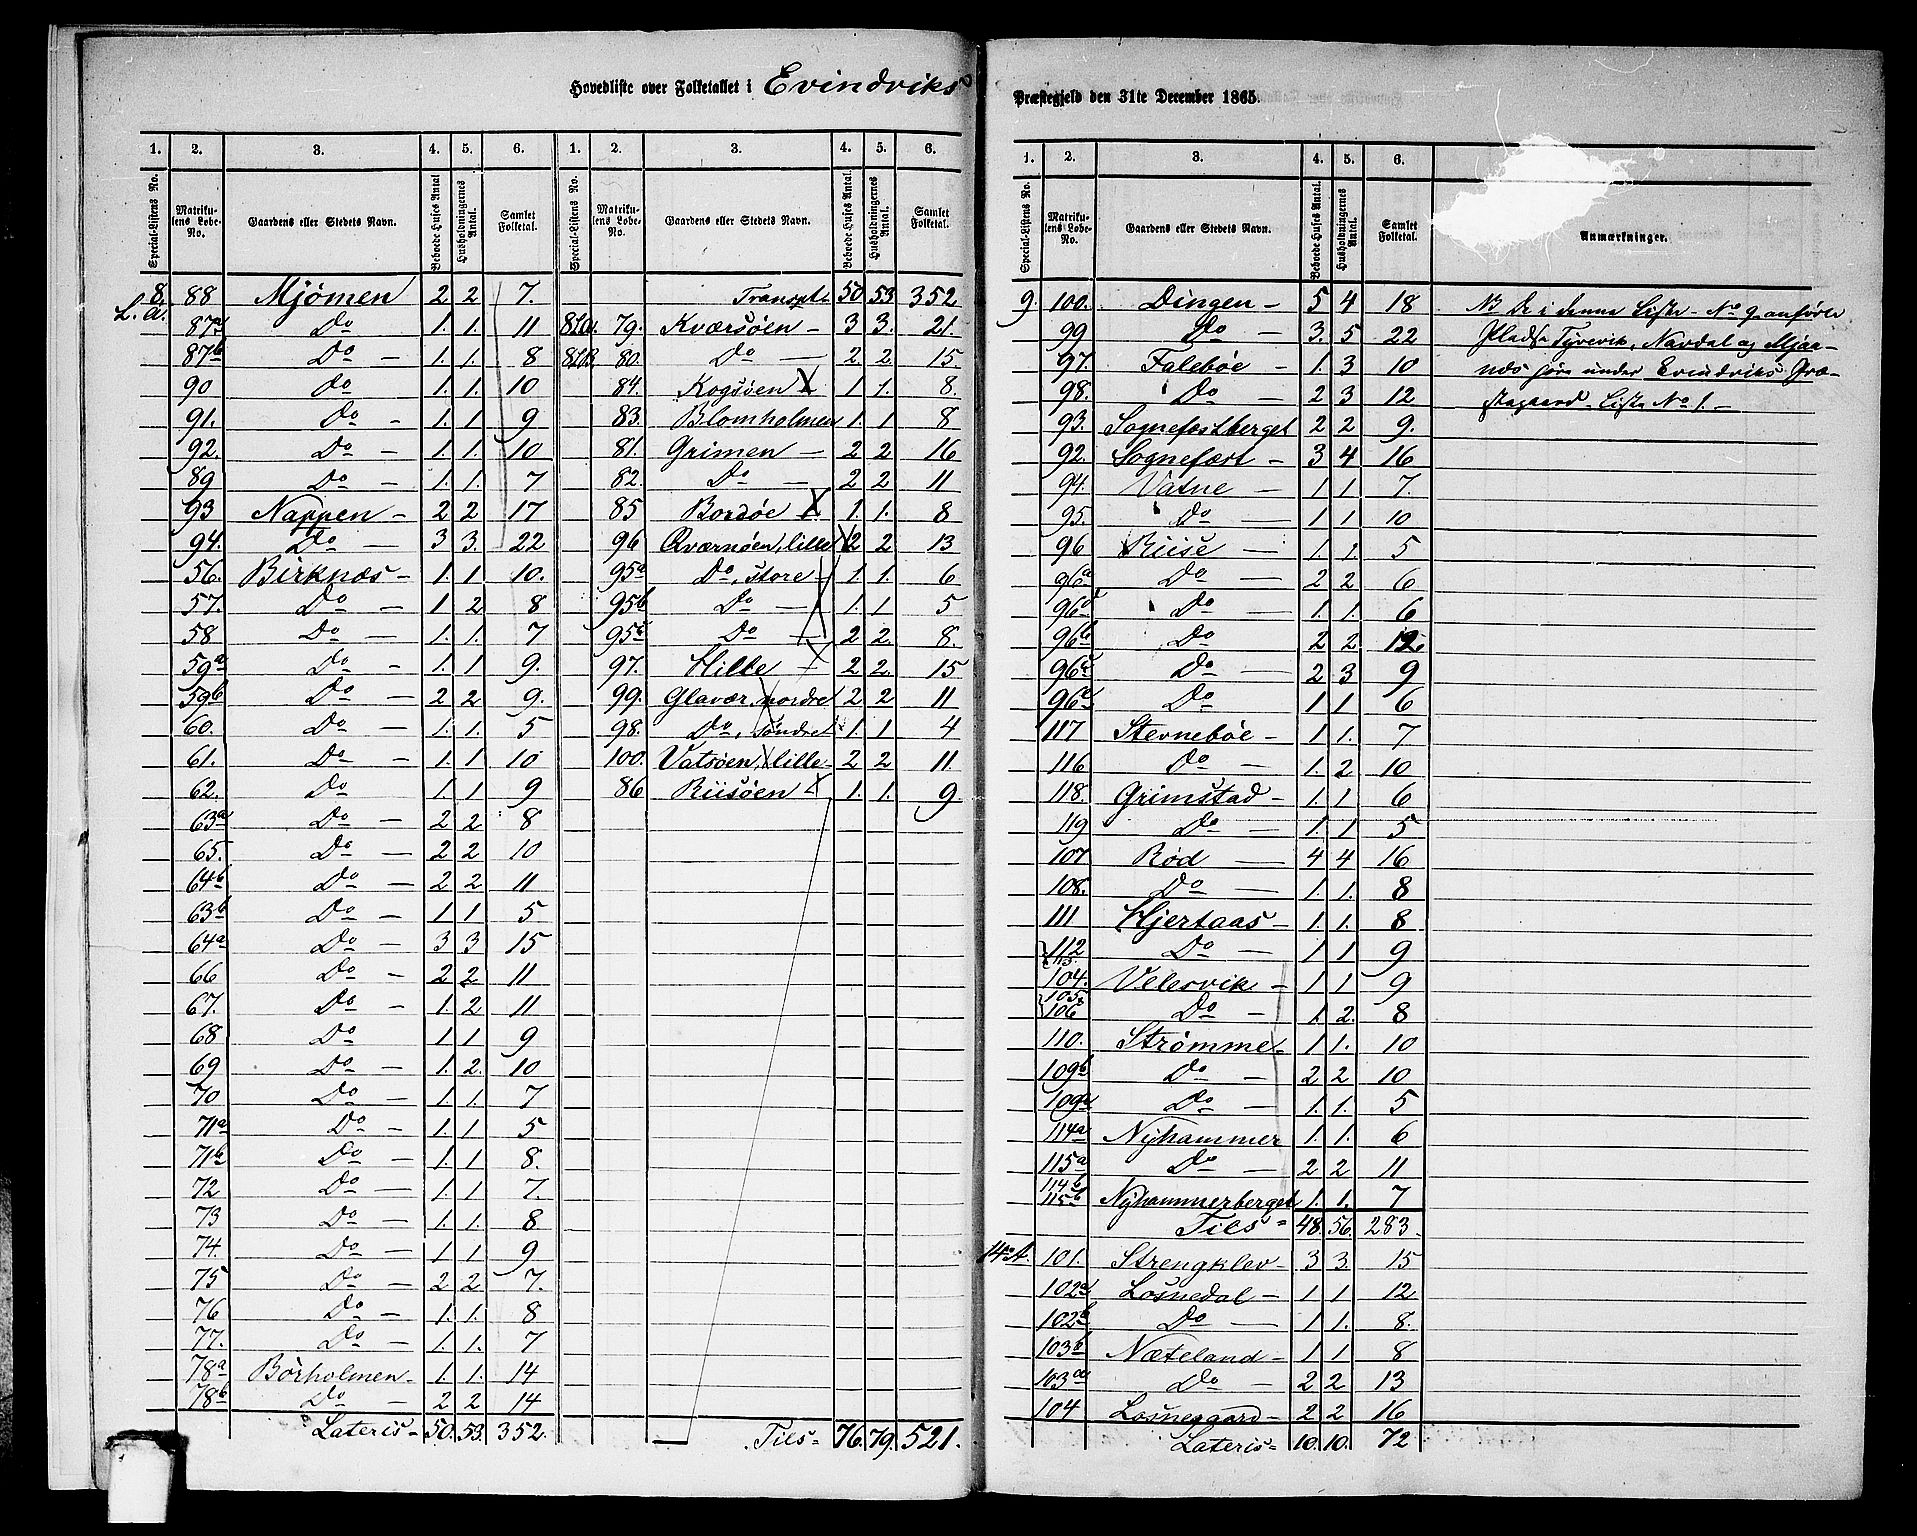 Hovedliste over Folketallet i Evindviks Præstegjeld den 31te December 1865.
1. 2. 3. 4. 5. 6. 1. 2. 3. 4. 5. 6.
Special-Listens No. Matrikulens Løbe-No. Gaardens eller Stedets Navn. Beboede Huses Antal Husholdningernes Antal. Samlet Folketal. Special-Listens No. Matrikulens Løbe-No. Gaardens eller Stedets Navn. Beboede Huses Antal. Husholdningernes Antal. Samlet Folketal.
8 L. a. 88 Mjömen 2 2 7.
87a Do 1. 1. 11
87b Do 1. 1. 8
90 Do 1. 1. 10
91. Do 1. 1. 9
92. Do 1. 1. 10
89 Do 1. 1. 7
93 Nappen 2 2 17
94. Do 3 3. 22
56. Birknæs 1. 1 10.
57. Do 1 2 8
58 Do 1. 1. 7
59a Do 1. 1 9.
59b Do 2 2 9.
60. Do 1. 1. 5
61. Do 1. 1 10
62. Do 1 1 9
63a Do 2 2 8
65. Do 2 2 10
64b Do 2 2 11
63b Do 1 1 5
64a Do 3 3 15
66 Do 2 2 11
67. Do 1. 2 11
68 Do 1 1 9
69 Do 1. 2. 10
70 Do 1 1. 7
71a Do 1. 1 5
71b Do 1. 1 8.
72 Do 1 1 7.
73 Do 1. 1. 8
74. Do 1 1 9
75 Do 2 2 7.
76 Do 1. 1. 8
77. Do 1. 1. 7
78a Börholmen 1. 1. 14
78b Do 2 2 14
Lateris 50. 53. 352.
Transpt. 50 53 352
8La. 79. Kværsöen 3 3. 21.
8LB. 80. Do 2 2 15.
84. Kogsöen 1 1. 8.
83. Blomholmen 1. 1 8
81. Grimen 2 2 16
82. Do 2 2 11
85 Bordöe 1. 1. 8
96 Qværnöen, lille 2 2 13
95a Do, store 1. 1. 6
95b Do 1. 1 5
95c Do 2 2. 8.
97. Hille 2 2 15
99. Glavær, nordre 2 2 11
98. Do, söndre 1. 1 4
100. Vatsöen, lille 2 2 11.
86 Riisöen 1. 1. 9.
Tils 76. 79. 521.
1. 2. 3. 4. 5. 6.
Special-Listens No. Matrikulens Løbe-No. Gaardens eller Stedets Navn. Beboede Huses Antal. Husholdningernes Antal. Samlet Folketal. Anmærkninger.
9. 100. Dingen 5 4 18
99 Do 3. 5 22
97. Falebøe 1. 3 10
98. Do 2 3 12
93. Sognefæstberget 2 2 9.
92. Sognefæst 3 4 16
94. Vatne 1 1 7.
95. Do 1 1 10
96 Riise 1. 1. 5
96a Do 2 2 6
96 Do 1. 1. 6
96b Do 2 2.
96c Do 2 3 9
96 Do 1 1 6
117 Stevnebøe 1 1. 7
116 Do 1. 2 10
118. Grimstad 1. 1 6
119 Do 1 1 5
107 Rød 4 4 16
108. Do 1. 1. 8
111 Hjertaas 1. 1. 8
112 113. Do 1 1 9
104. Velesvik 1 1 9
105 106 Do 1. 2. 8
110. Strømme 1 1. 10
109b Do 2 2 10
109a Do 1. 1. 5
114a Nyhammer 1. 1. 6
115a Do 2 2 11
114b 115b Nyhammerberget 1. 1. 7
Tils 48. 56. 283.
14de A. 101. Strengklev 3 3. 15
102a Losnedal 1 1 12
102b Do 1 1. 8.
103b Næteland 1 1 8
103a Do 2 2 13
104 Losnegaard 2 2 16
Lateris 10. 10. 72
NB De i denne Liste No 9 anførte
Pladse Tyrevik, Navdal og Mjaa-
nds høre under Evindviks Præ-
stegaard Liste No 1.